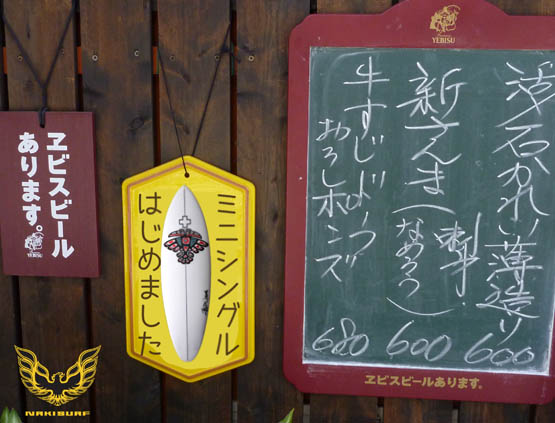 ヱビスビール
あります。
YEBISU
ミニシングル
はじめました
NAKISURF
YEBISU
活石かれい薄造り 600
新さんま(刺身 なめろう) 600
牛すじ
おろしポンズ 680
ヱビスビールあります。